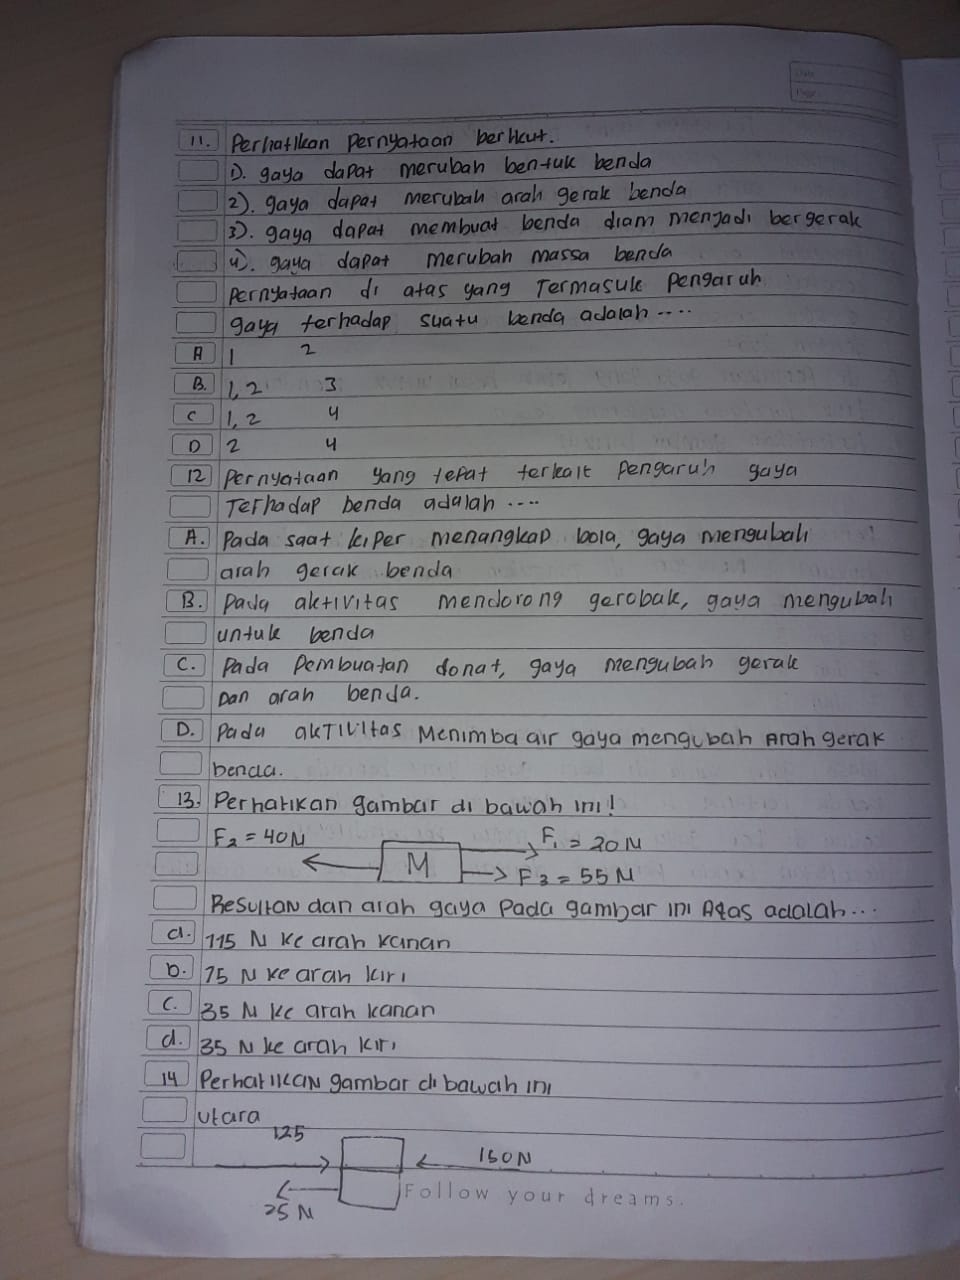 Date
Page
11. Perhatikan pernyataan berikut.
1). gaya dapat merubah bentuk benda
2). gaya dapat merubah arah gerak benda
3). gaya dapat membuat benda diam menjadi bergerak
4). gaya dapat merubah massa benda
Pernyataan di atas yang Termasuk Pengaruh
gaya terhadap suatu benda adalah ....
A 1 2
B. 1, 2 3
C 1, 2 4
D 2 4
12 Pernyataan yang tepat terkait pengaruh gaya
Terhadap benda adalah ....
A. Pada saat kiper menangkap bola, gaya mengubah
arah gerak benda
B. Pada aktivitas mendorong gerobak, gaya mengubah
untuk benda
C. Pada Pembuatan donat, gaya mengubah gerak
Dan arah benda.
D. Pada akTIVItas Menimba air gaya mengubah Arah gerak
benda.
13. Perhatikan gambar di bawah ini!
F2 = 40 N M F1 = 20 N
F3 = 55 N
Resultan dan arah gaya Pada gambar ini Atas adalah...
a. 115 N ke arah kanan
b. 75 N ke arah kiri
c. 35 N ke arah kanan
d. 35 N ke arah kiri
14 Perhatikan gambar di bawah ini
utara
125
150N
25 N
Follow your dreams.